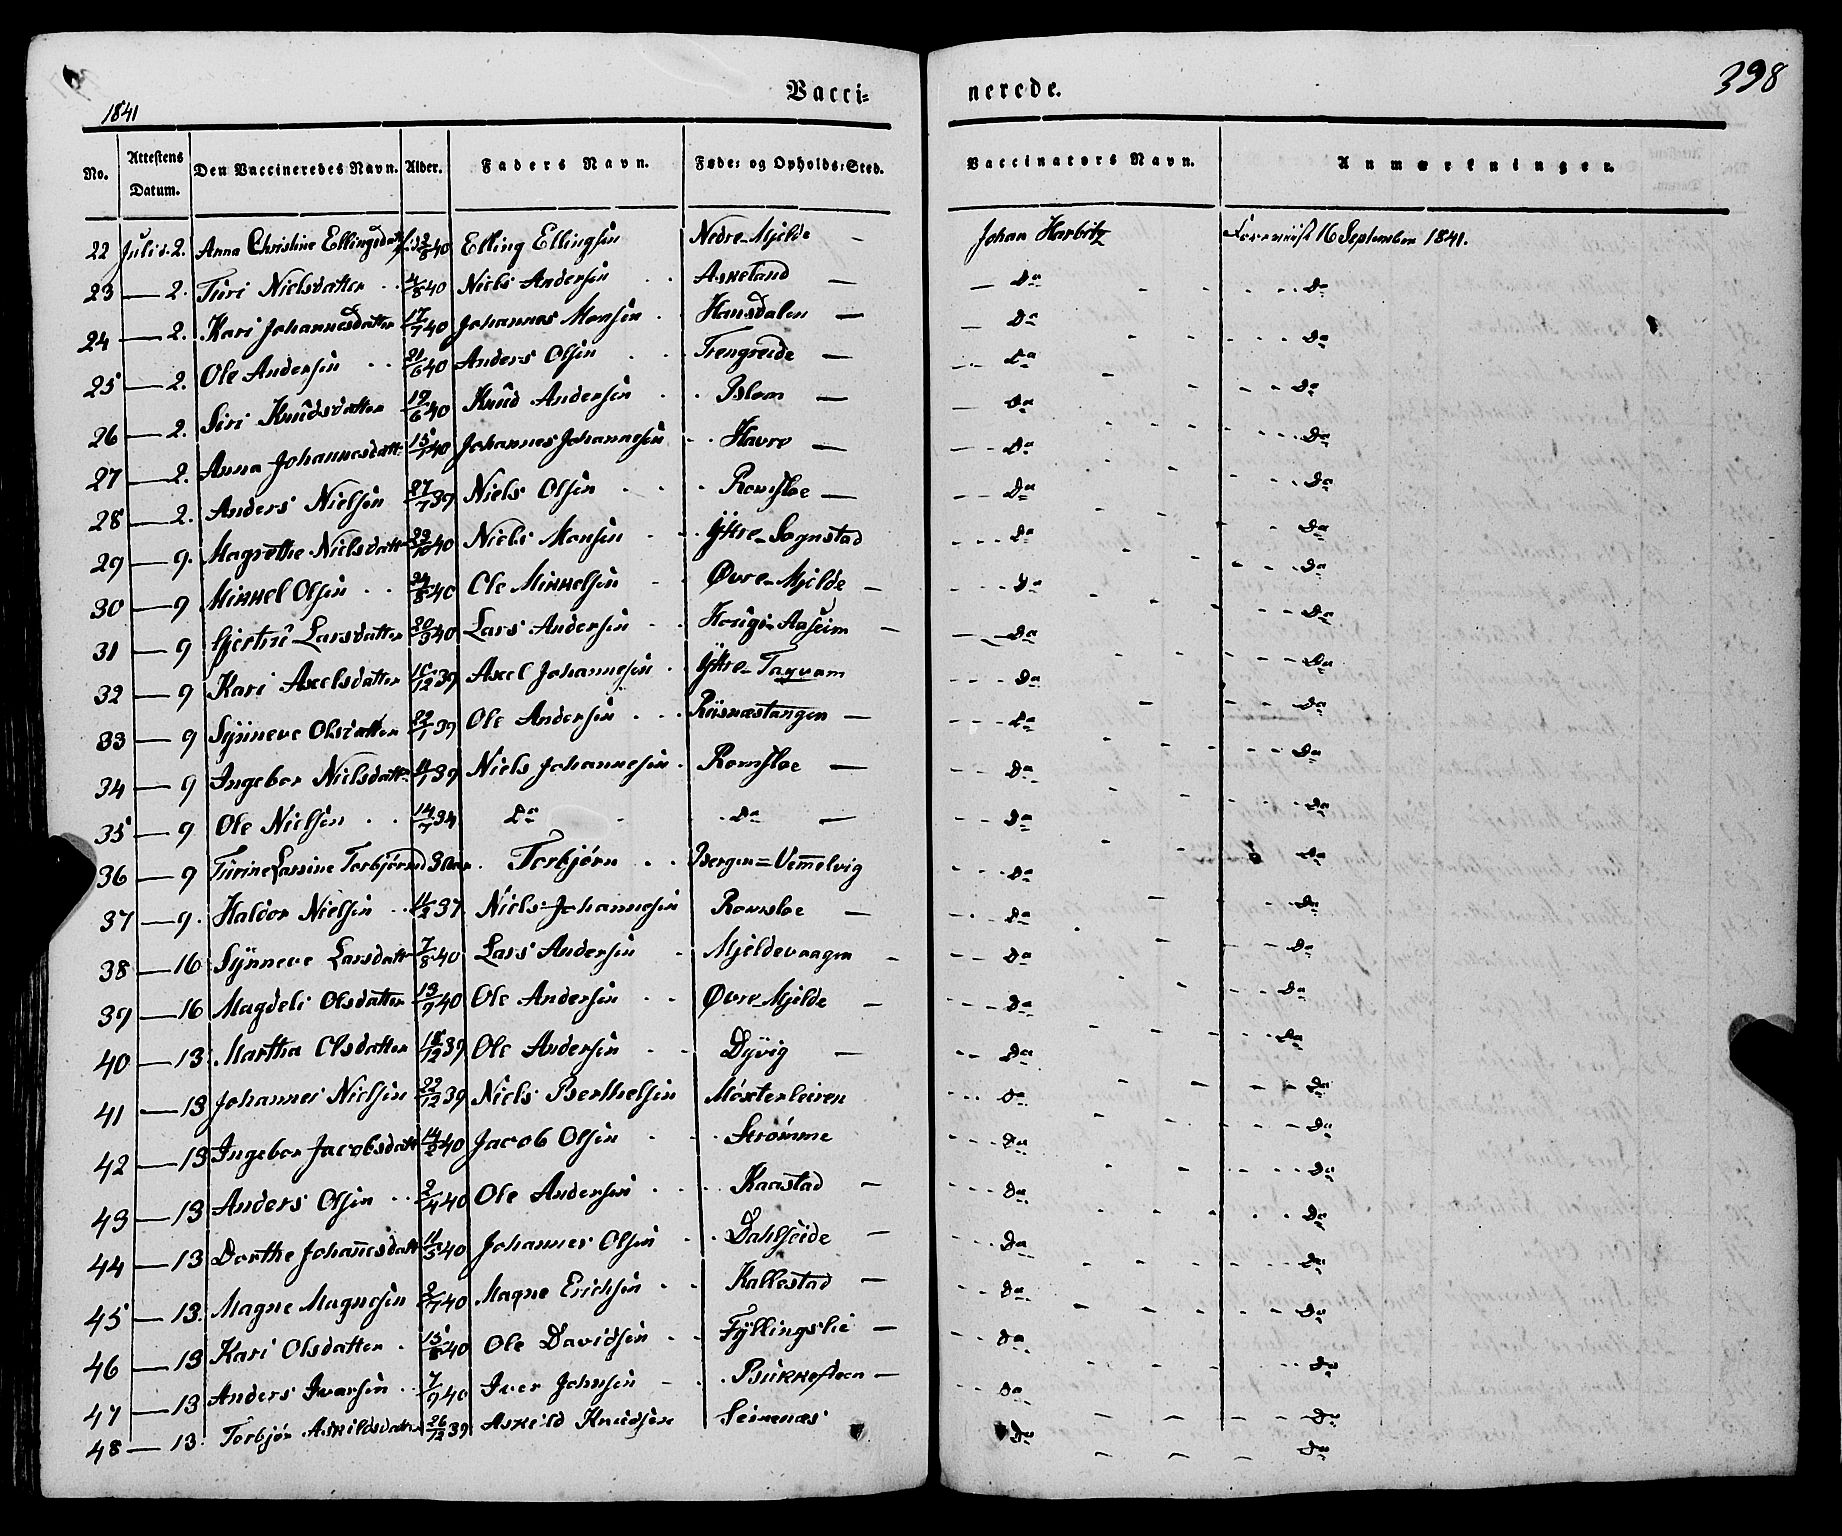 398
1841
Vacci= nerede.
No. | Attestens Datum. | Den Vaccineredes Navn. | Alder. | Faders Navn. | Føde= og Opholds=Sted. | Vaccinators Navn. | Anmærkninger.
22 Juli d. 2. Anna Christine Ellingsdatt 2/8 40 Elling Ellingsen Nedre-Mjelde – Johan Harbitz Foreviist 16 September 1841.
23 — 2. Turi Nielsdatter 4/8 40 Niels Andersen Askeland – Do Do
24 — 2. Kari Johannesdatter 17/7 40 Johannes Monsen Hansdalen – Do Do
25 — 2. Ole Andersen 21/6 40 Anders Olsen Trengreide – Do Do
26 — 2. Siri Knudsdatter 19/6 40 Knud Andersen Blom – Do Do
27 — 2. Anna Johannesdatt 15/7 40 Johannes Johannesen Havre – Do Do
28 — 2. Anders Nielsen 27/7 39 Niels Olsen Romsloe – Do Do
29 — 9. Magrethe Nielsdatt 22/10 40 Niels Monsen Yttre-Sognstad Do Do
30 — 9 Mikkel Olsen 24/8 40 Ole Mikkelsen Øvre-Mjelde – Do Do
31 — 9 Gjertru Larsdatter 20/3 40 Lars Andersen Houge-Aaseim – Do Do
32 — 9 Kari Axelsdatter 15/12 39 Axel Johannesen Yttre-Taqvam Do Do
33 — 9 Synneve Olsdatter 22/1 39 Ole Andersen Risnæstangen – Do Do
34 — 9 Ingebor Nielsdatt 11/7 39 Niels Johannesen Romsloe – Do Do
35 — 9 Ole Nielsen 14/7 34 Do Do – Do Do
36 — 9 Turine Lassine Torbjørnd 30 aar Torbjørn Bergen=Vemmelvig Do Do
37 — 9. Haldor Nielsen 11/2 37 Niels Johannesen Romsloe – Do Do
38 — 16 Synneve Larsdatt 7/8 40 Lars Andersen Mjeldevaagen – Do Do
39 — 16 Magdeli Olsdatter 13/9 40 Ole Andersen Øvre-Mjelde – Do Do
40 — 13. Martha Olsdatter 18/12 39 Ole Andersen Dyvig – Do Do
41 — 13 Johannes Nielsen 22/12 39 Niels Berthelsen Møxterleiren Do Do
42 — 13 Ingebor Jacobsdatt 14/2 40 Jacob Olsen Strømme Do Do
43 — 13 Anders Olsen 2/4 40 Ole Andersen Kaastad – Do Do
44 — 13 Dorthe Johanesdatt 11/5 40 Johannes Olsen Dahlseide – Do Do
45 — 13. Magne Magnesen 2/7 40 Magne Erichsen Kallestad – Do Do
46 — 13 Kari Olsdatter 15/8 40 Ole Davidsen Fyllingslie – Do Do
47 — 13 Anders Ivarsen 7/9 40 Iver Johnsen Bukkesteen – Do Do
48 — 13. Torbjør Askildsdatter 26/12 39 Askeild Knudsen Seimnæs Do Do